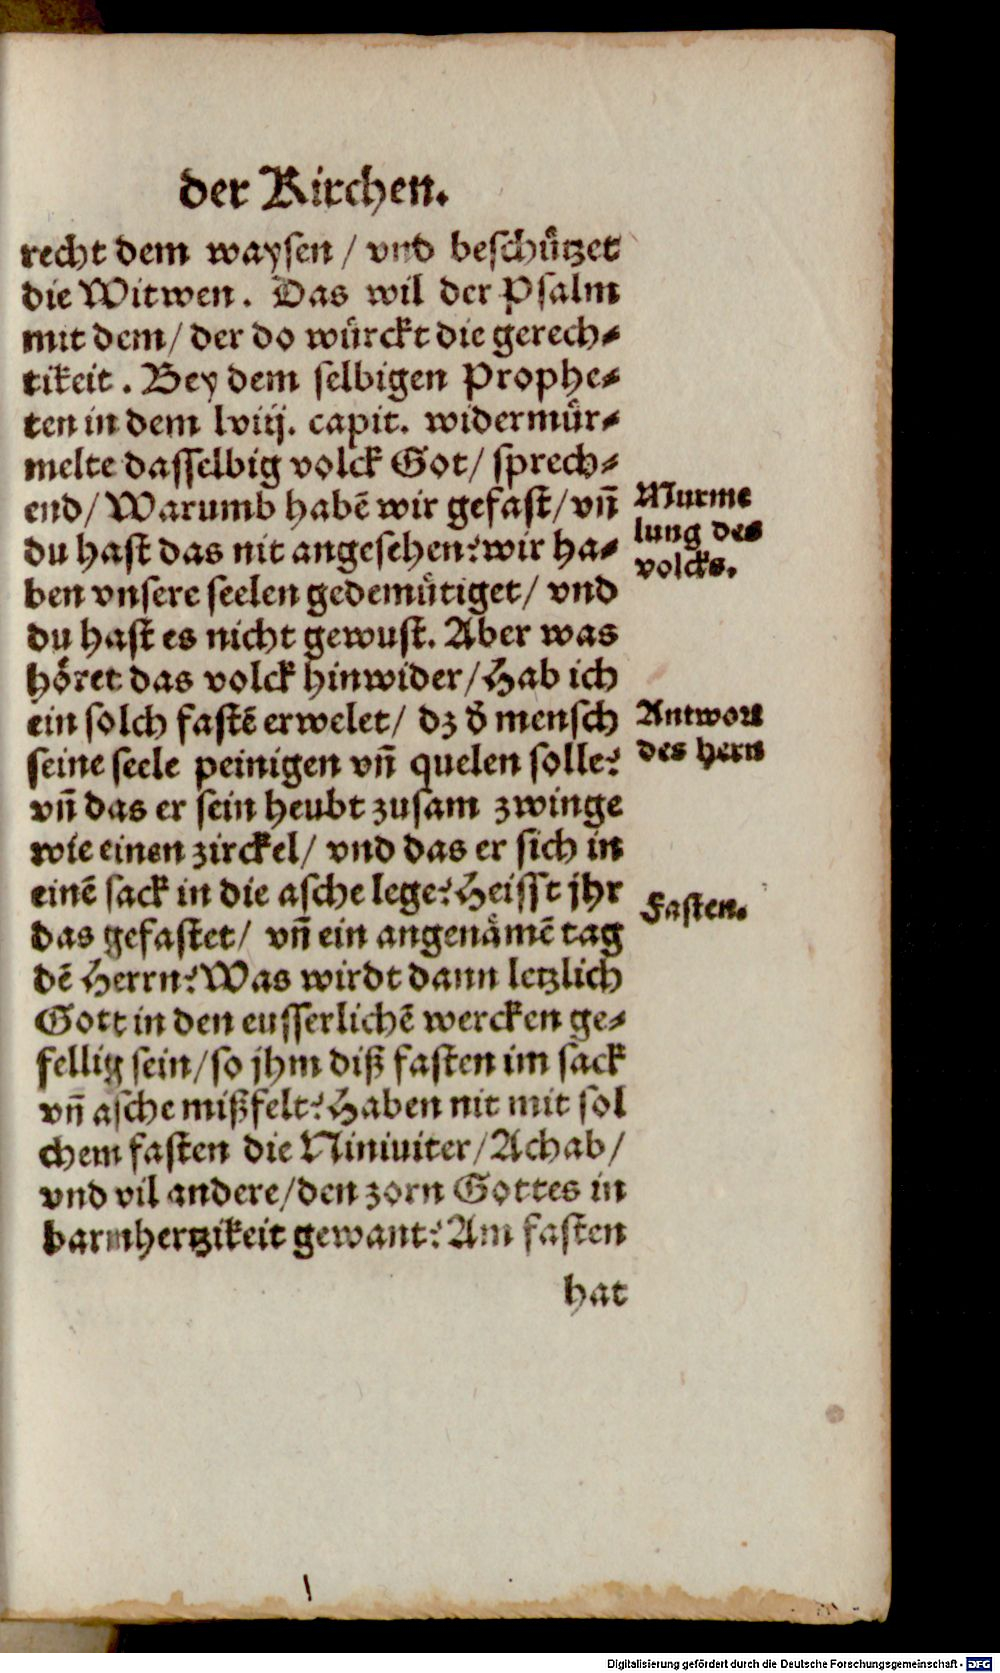 der Kirchen.
recht dem waysen / vnd beschützet
die Witwen. Das wil der Psalm
mit dem / der do würckt die gerech-
tikeit. Bey dem selbigen Prophe-
ten in dem lviij. capit. widermür-
melte dasselbig volck Got / sprech-
end / Warumb habē wir gefast / vn̄
du hast das nit angesehen? wir ha-
ben vnsere seelen gedemütiget / vnd
du hast es nicht gewust. Aber was
höret das volck hinwider / Hab ich
ein solch fastē erwelet / dz d̄ mensch
seine seele peinigen vn̄ quelen solle?
vn̄ das er sein heubt zusam zwinge
wie einen zirckel / vnd das er sich in
einē sack in die asche lege? Heisst jhr
das gefastet / vn̄ ein angenämē tag
dē Herrn? Was wirdt dann letzlich
Gott in den eusserlichē wercken ge-
fellig sein / so jhm diß fasten im sack
vn̄ asche mißfelt? Haben nit mit sol
chem fasten die Niniuiter / Achab /
vnd vil andere / den zorn Gottes in
barmhertzikeit gewant? Am fasten
hat
Murme
lung des
volcks.
Antwort
des hern
Fasten.
Digitalisierung gefördert durch die Deutsche Forschungsgemeinschaft - DFG